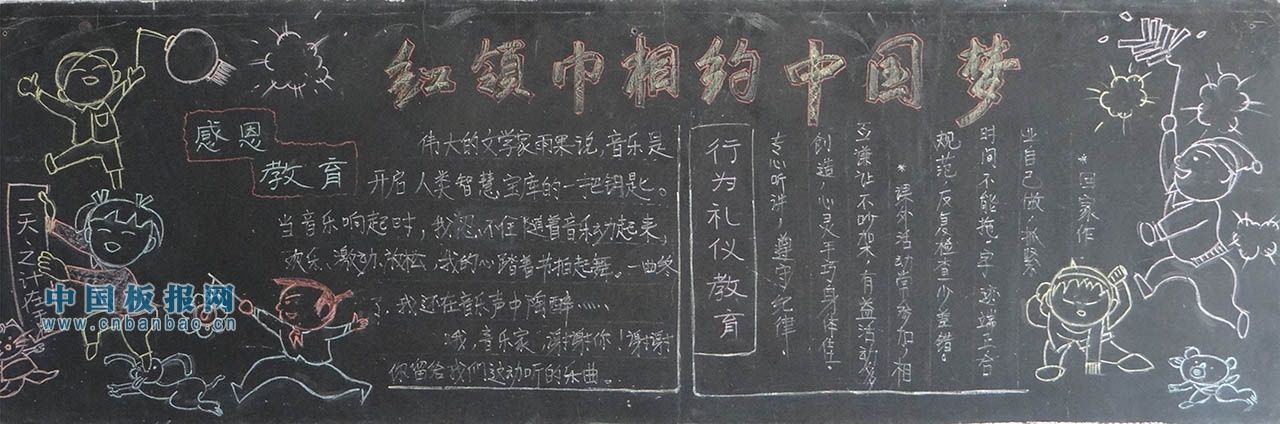 红领巾相约中国梦
感恩
教育
伟大的文学家雨果说,音乐是
开启人类智慧宝库的一把钥匙。
当音乐响起时,我忍不住随着音乐动起来,
欢乐、激动、放松,我的心踏着节拍起舞。一曲终
了,我还在音乐声中陶醉……
哦,音乐家,谢谢你!谢谢
你留给我们这动听的乐曲。
行为礼仪教育
*回家作
业自己做,抓紧
时间不能拖,字迹端正合
规范,反复检查少差错。
*课外活动常参加,相
互谦让不吵架,有益活动多
创造,心灵手巧身体佳。
专心听讲,遵守纪律。
一天之计在
中国板报网
www.cnbanbao.cn